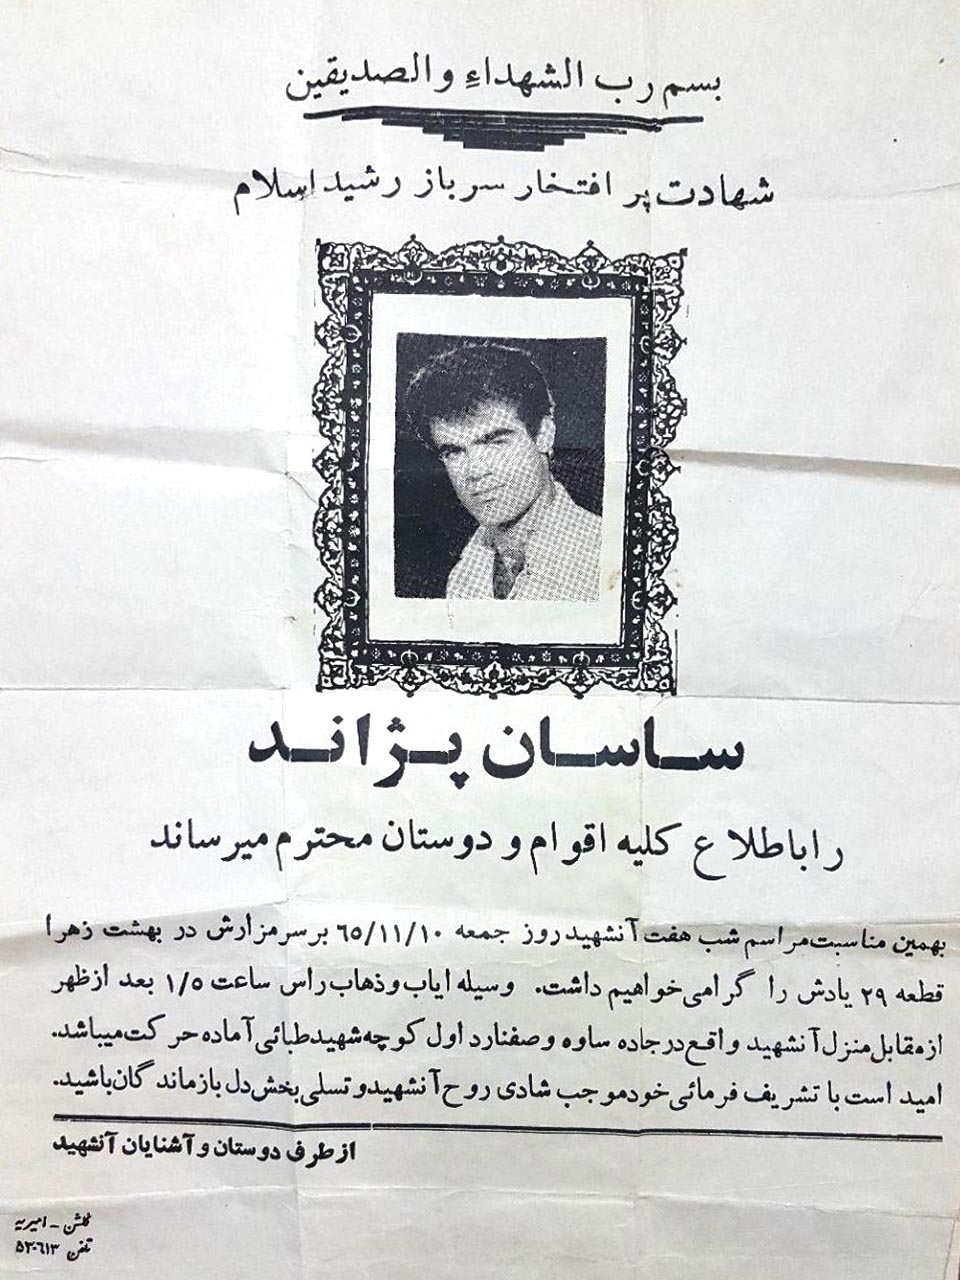 بسم رب الشهداء والصدیقین
شهادت پر افتخار سرباز رشید اسلام
ساسان پژاند
را باطلاع کلیه اقوام و دوستان محترم میرساند
بهمین مناسبت مراسم شب هفت آنشهید روز جمعه ۶۵/۱۱/۱۰ بر سر مزارش در بهشت زهرا
قطعه ۲۹ یادش را گرامی خواهیم داشت. وسیله ایاب و ذهاب راس ساعت ۱/۵ بعد از ظهر
از مقابل منزل آنشهید واقع در جاده ساوه وصفنارد اول کوچه شهید طبائی آماده حرکت میباشد.
امید است با تشریف فرمائی خود موجب شادی روح آنشهید و تسلی بخش دل بازماندگان باشید.
از طرف دوستان و آشنایان آنشهید
گلشن - امیریه
تلفن ۵۳۰۶۱۳